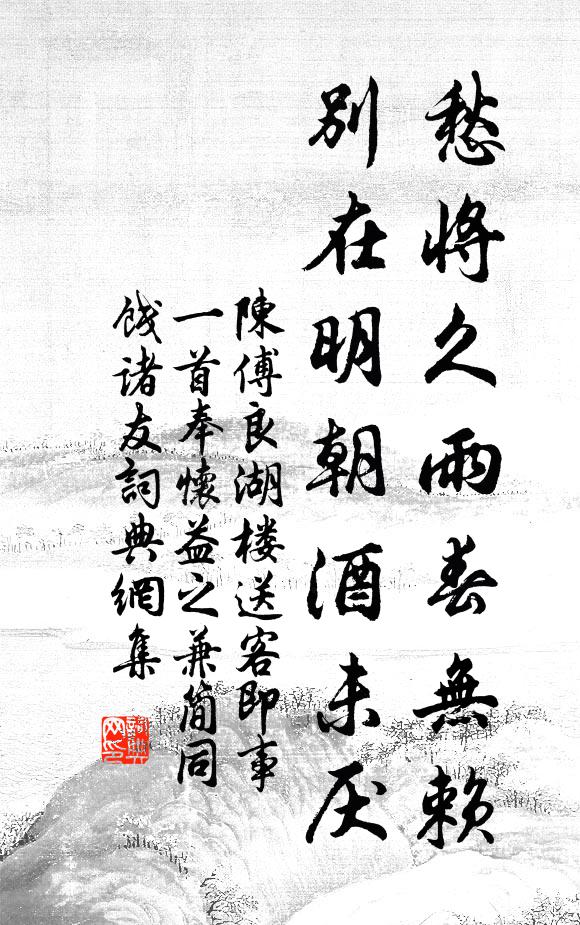 愁將久雨春無賴
別在明朝酒未厌
陳傅良湖楼送客即事
一首奉懷益之兼簡同
餞诸友詞典網集
詞典网印